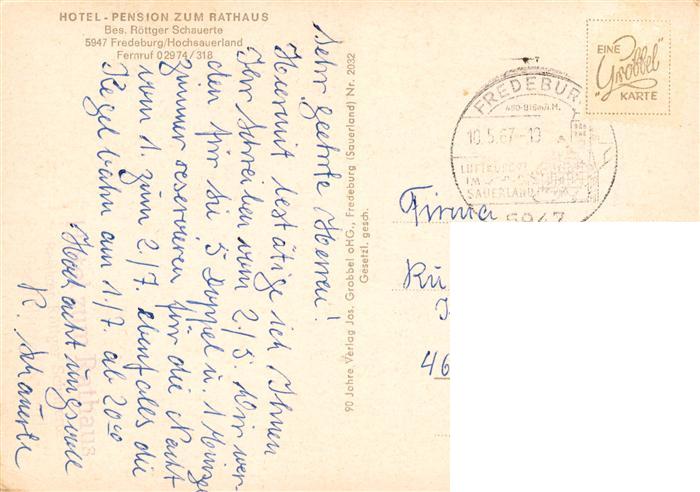 HOTEL - PENSION ZUM RATHAUS
Bes. Röttger Schauerte
5947 Fredeburg/Hochsauerland
Fernruf 0 29 74 / 318
Sehr geehrte Herren!
Hiermit bestätige ich Ihnen
Ihr Schreiben vom 2/5. Wir wer-
den für Sie 5 Doppel u. 1 Einzel
zimmer reservieren für die Nacht
vom 1. zum 2/7. ebenfalls die
Kegelbahn am 1/7. ab 20⁰⁰
Hochachtungsvoll
R. Schauerte
zum Rathaus
90 Jahre Verlag Jos. Grobbel oHG., Fredeburg (Sauerland) Nr. 2032
Gesetzl. gesch.
EINE
"Grobbel"
KARTE
FREDEBUR
450-816m ü.M.
10.5.67-19
LUFTKURORT
IM
SAUERLAND
5947
Firma
46